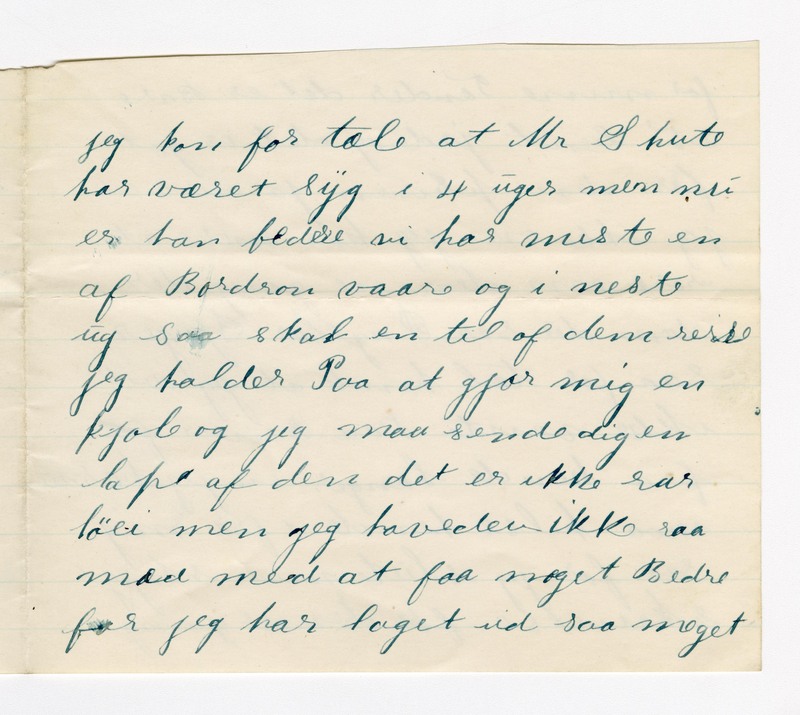 jeg kan for tæle at Mr Shute
har været syg i 4 uger men nu
er han bedere vi har miste en
af Bordron vaare og i neste
ug saa skal en til af dem reise
jeg halder Paa at gjør mig en
kjole og jeg maa sende dig en
lap af den det er ikke rar
töei men jeg haveden ikke raa
mæd med at faa noget Bedre
for jeg har laget ud saa meget